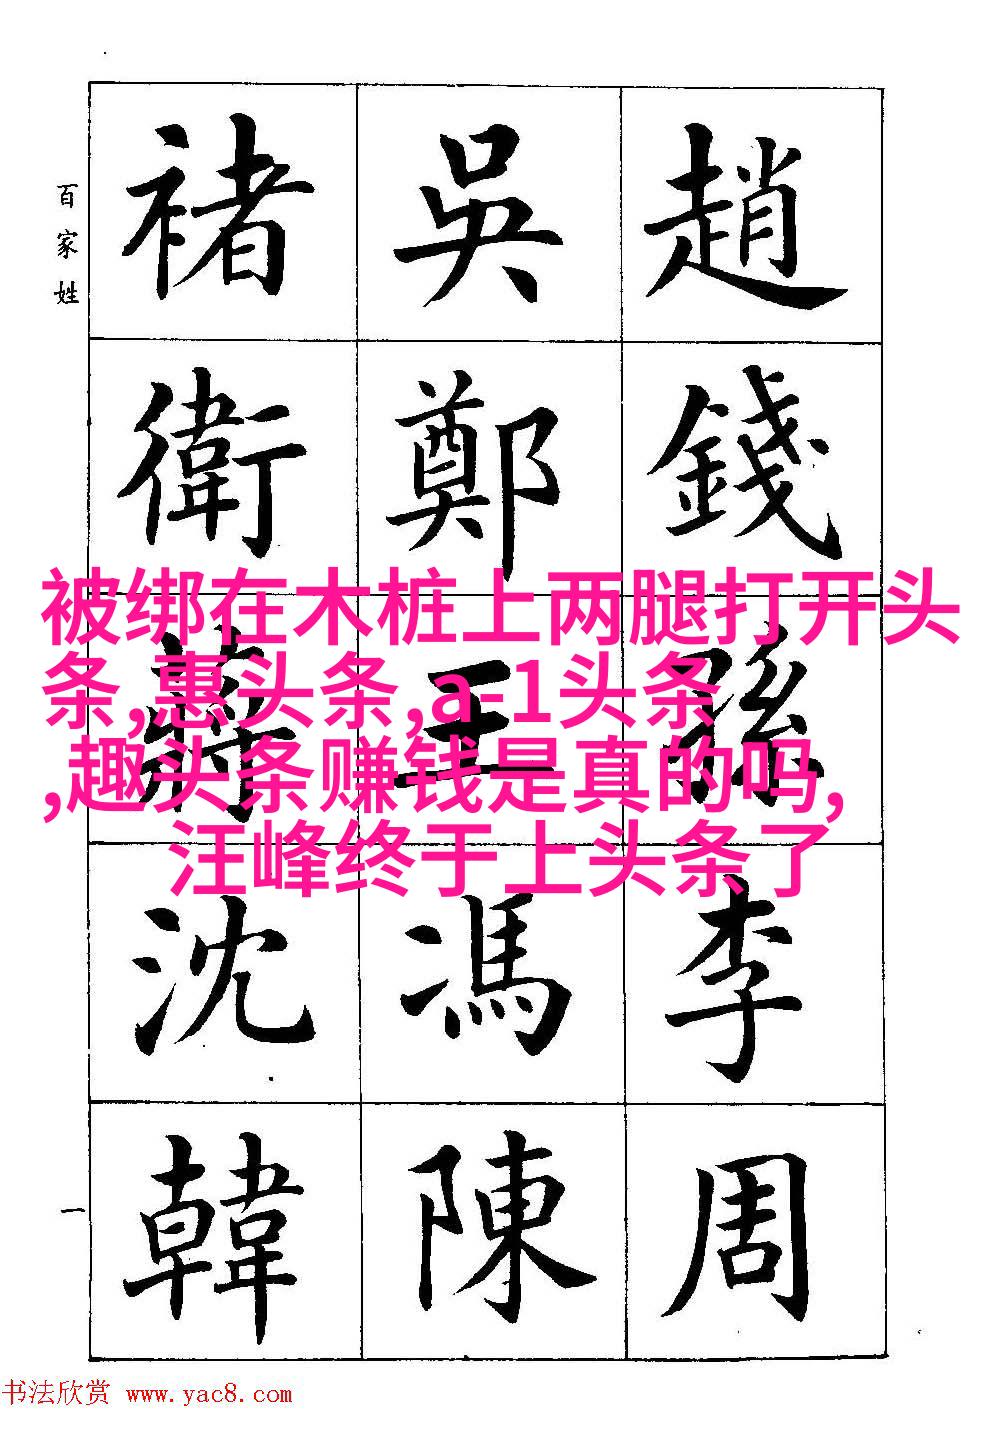 百家姓
趙
錢
孫
李
周
吳
鄭
王
馮
陳
褚
衛
蔣
沈
韓
一
被绑在木桩上两腿打开头
条,惠头条,a-1头条
,趣头条赚钱是真的吗,
汪峰终于上头条了
书法欣赏 www.yac8.com